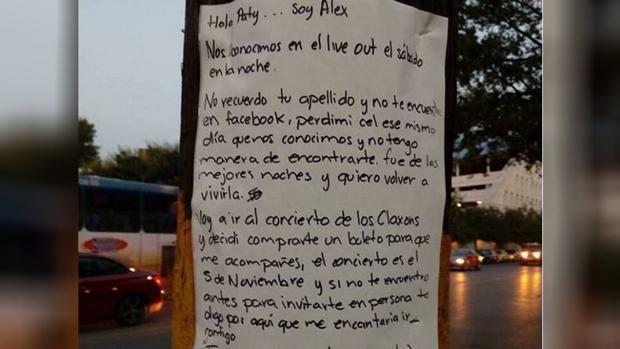 Hola Paty... Soy Alex
Nos conocimos en el live out el sábado
en la noche.
No recuerdo tu apellido y no te encuen
en facebook, perdi mi cel ese mismo
día que nos conocimos y no tengo
manera de encontrarte. fue de las
mejores noches y quiero volver a
vivirla.
Voy a ir al concierto de los Claxons
y decidi comprarte un boleto para que
me acompañes, el concierto es el
5 de Noviembre y si no te encuentro
antes para invitarte en persona te
digo por aquí que me encantaria ir
contigo